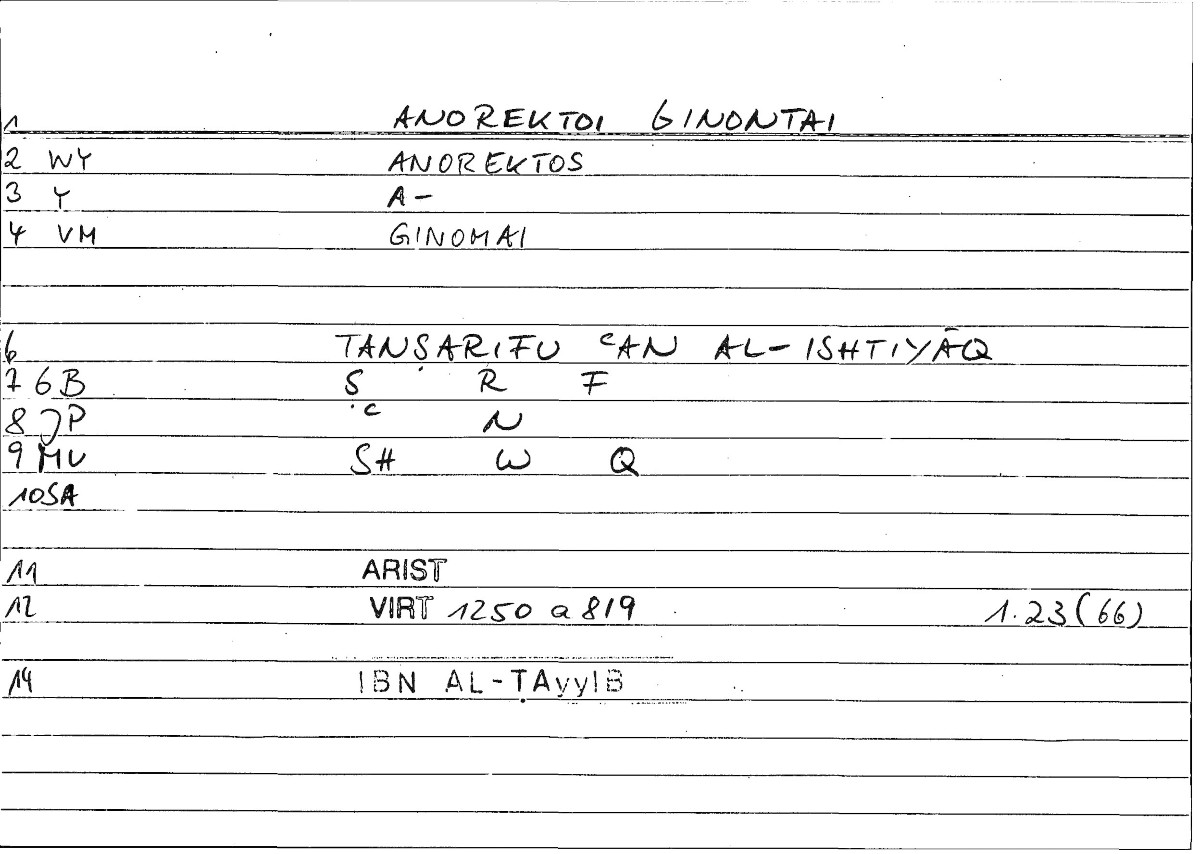 1 ANOREKTOI GINONTAI
2 WY ANOREKTOS
3 Y A-
4 VM GINOMAI
6 TANṢARIFU ʿAN AL-ISHTIYĀQ
7 6B Ṣ R F
8 JP ʿ N
9 MU SH W Q
10 SA
11 ARIST
12 VIRT 1250 a 8/9 1.23(66)
14 IBN AL-ṬAyyIB